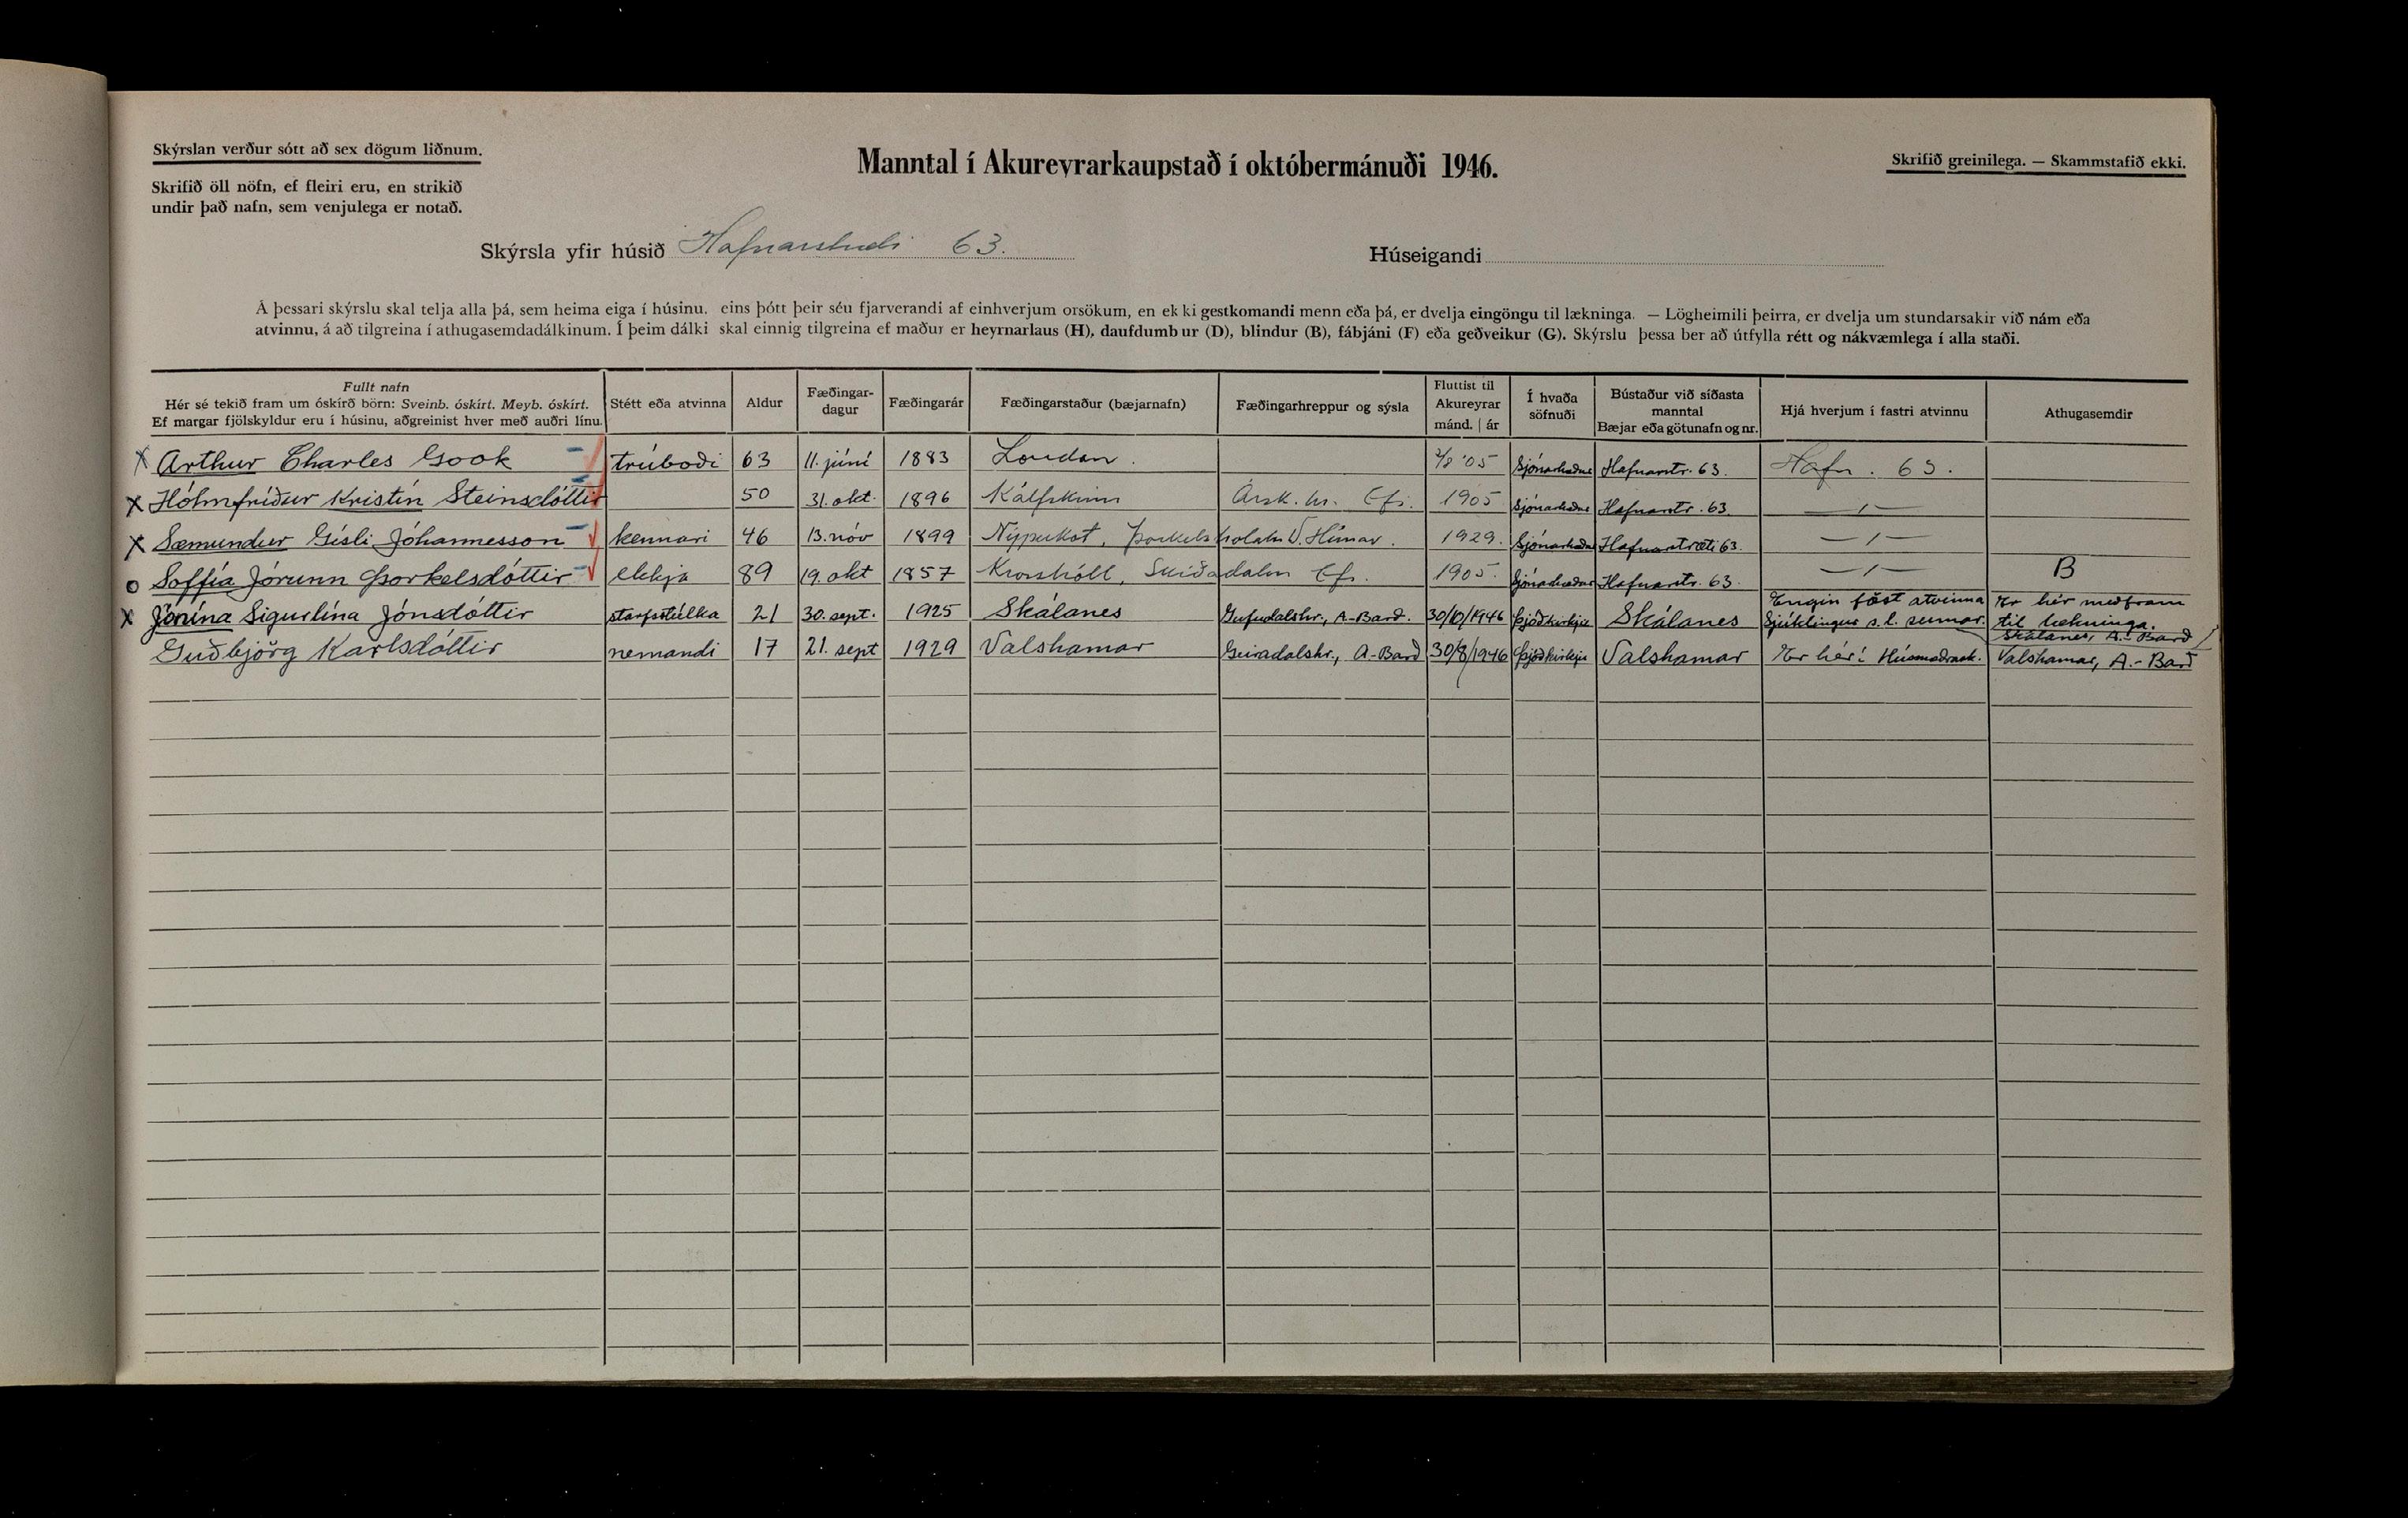 Skýrslan verður sótt að sex dögum liðnum.
Skrifið öll nöfn, ef fleiri eru, en strikið
undir það nafn, sem venjulega er notað.
Manntal í Akureyrarkaupstað í októbermánuði 1946.
Skrifið greinilega. — Skammstafið ekki.
Skýrsla yfir húsið Hafnarstræti 63.
Húseigandi
Á þessari skýrslu skal telja alla þá, sem heima eiga í húsinu, eins þótt þeir séu fjarverandi af einhverjum orsökum, en ekki gestkomandi menn eða þá, er dvelja eingöngu til lækninga. — Lögheimili þeirra, er dvelja um stundarsakir við nám eða
atvinnu, á að tilgreina í athugasemdadálkinum. Í þeim dálki skal einnig tilgreina ef maður er heyrnarlaus (H), daufdumbur (D), blindur (B), fábjáni (F) eða geðveikur (G). Skýrslu þessa ber að útfylla rétt og nákvæmlega í alla staði.
Fullt nafn
Hér sé tekið fram um óskírð börn: Sveinb. óskírt. Meyb. óskírt.
Ef margar fjölskyldur eru í húsinu, aðgreinist hver með auðri línu.
Stétt eða atvinna
Aldur
Fæðingar-
dagur
Fæðingarár
Fæðingarstaður (bæjarnafn)
Fæðingarhreppur og sýsla
Fluttist til
Akureyrar
mánd. | ár
Í hvaða
söfnuði
Bústaður við síðasta
manntal
Bæjar eða götunafn og nr.
Hjá hverjum í fastri atvinnu
Athugasemdir
x Arthur Charles Gook trúboði 63 11. júní 1883 London. 2/8 '05 Sjónarhæðar Hafnarstr. 63. Hafn. 63.
x Hólmfríður Kristín Steinsdóttir 50 31. okt. 1896 Kálfskinn Ársk. hr. Efj. 1905 Sjónarhæðar Hafnarstr. 63. —〃—
x Sæmundur Gísli Jóhannesson kennari 46 13. nóv 1899 Nýpukot, Þorkelshólahr V. Húnav. 1929. Sjónarhæðar Hafnarstræti 63. —〃—
o Soffía Jórunn Þorkelsdóttir ekkja 89 19. okt 1857 Krosshóll, Skíðadalur Efj. 1905. Sjónarhæðar Hafnarstr. 63. —〃— B
x Jónína Sigurlína Jónsdóttir starfsstúlka 21 30. sept. 1925 Skálanes Gufudalshr., A-Barð. 30/10/1946 Þjóðkirkju Skálanes Engin föst atvinna
Sjúklingur s.l. sumar.
Er hér meðfram
til lækninga.
Skálanes, A.-Barð
Guðbjörg Karlsdóttir nemandi 17 21. sept 1929 Valshamar Geiradalshr., A-Barð 30/8/1946 Þjóðkirkju Valshamar Er hér í Húsmæðrask. Valshamar, A.-Barð